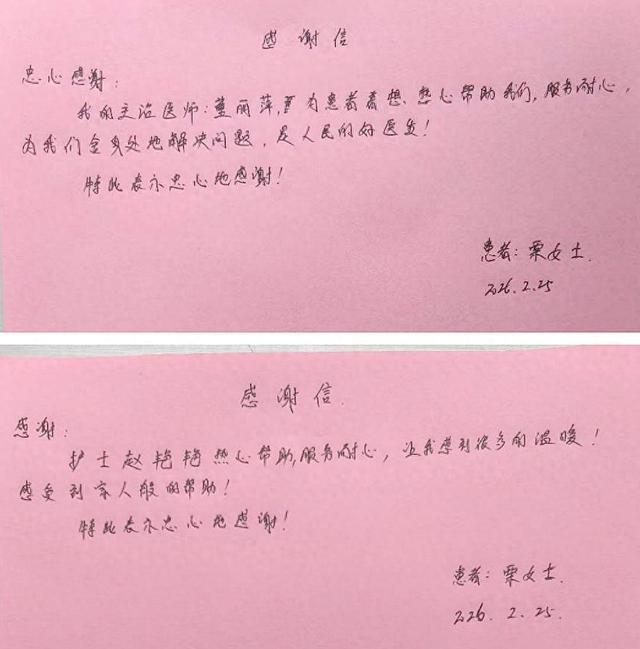 感谢信
忠心感谢：
我的主治医师：董丽萍，为患者着想、热心帮助我们，服务耐心，
为我们全身处地解决问题，是人民的好医生！
特此表示忠心地感谢！
患者：栗女士.
2026.2.25
感谢信.
感谢：
护士赵艳艳热心帮助，服务耐心，让我感到很多的温暖！
感受到家人般的帮助！
特此表示忠心地感谢！
患者：栗女士.
2026.2.25.